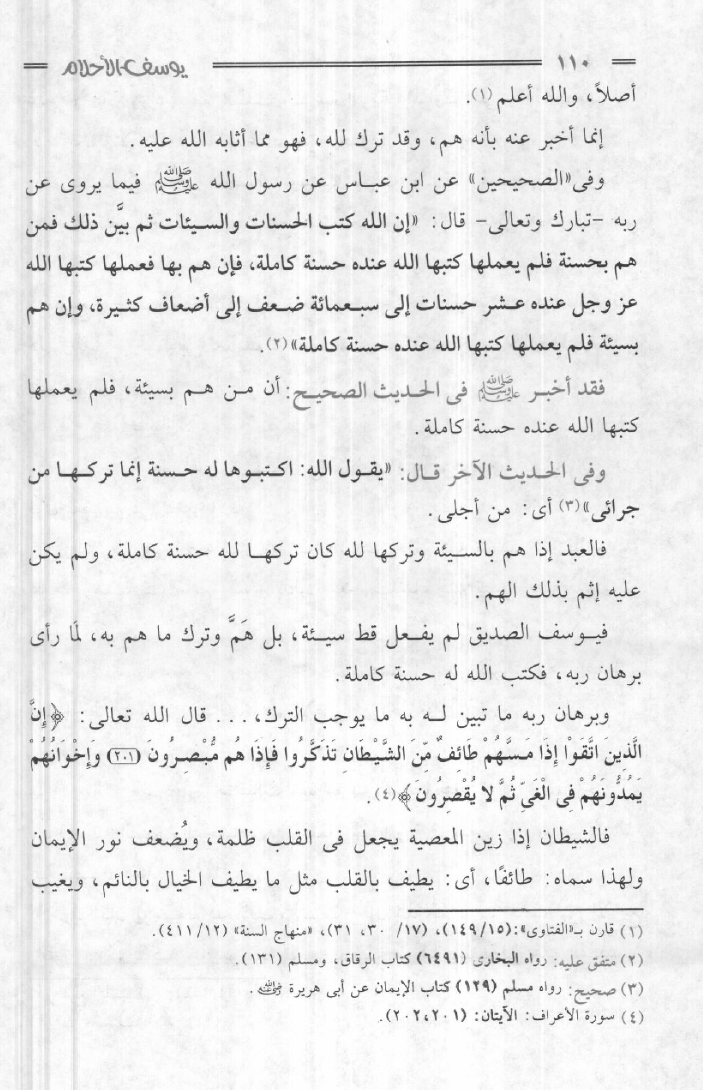 ١١٠ يوسف الأحلام
أصلاً، والله أعلم (١).
إنما أخبر عنه بأنه هم، وقد ترك لله، فهو مما أثابه الله عليه.
وفى «الصحيحين» عن ابن عباس عن رسول الله ﷺ فيما يروى عن
ربه -تبارك وتعالى- قال: «إن الله كتب الحسنات والسيئات ثم بيَّن ذلك فمن
هم بحسنة فلم يعملها كتبها الله عنده حسنة كاملة، فإن هم بها فعملها كتبها الله
عز وجل عنده عشر حسنات إلى سبعمائة ضعف إلى أضعاف كثيرة، وإن هم
بسيئة فلم يعملها كتبها الله عنده حسنة كاملة» (٢).
فقد أخبر ﷺ فى الحديث الصحيح: أن من هم بسيئة، فلم يعملها
كتبها الله عنده حسنة كاملة.
وفى الحديث الآخر قال: «يقول الله: اكتبوها له حسنة إنما تركها من
جرائى» (٣) أى: من أجلى.
فالعبد إذا هم بالسيئة وتركها لله كان تركها لله حسنة كاملة، ولم يكن
عليه إثم بذلك الهم.
فيوسف الصديق لم يفعل قط سيئة، بل هَمَّ وترك ما هم به، لَما رأى
برهان ربه، فكتب الله له حسنة كاملة.
وبرهان ربه ما تبين له به ما يوجب الترك،... قال الله تعالى: ﴿إِنَّ
الَّذِينَ اتَّقَوْا إِذَا مَسَّهُمْ طَائِفٌ مِّنَ الشَّيْطَانِ تَذَكَّرُوا فَإِذَا هُم مُّبْصِرُونَ (٢٠١) وَإِخْوَانُهُمْ
يَمُدُّونَهُمْ فِى الْغَىِّ ثُمَّ لا يُقْصِرُونَ﴾ (٤).
فالشيطان إذا زين المعصية يجعل فى القلب ظلمة، ويُضعف نور الإيمان
ولهذا سماه: طائفًا، أى: يطيف بالقلب مثل ما يطيف الخيال بالنائم، ويغيب
(١) قارن بـ«الفتاوى»: (١٤٩/١٥)، (١٧/ ٣٠، ٣١)، «منهاج السنة» (٤١١/١٢).
(٢) متفق عليه: رواه البخارى (٦٤٩١) كتاب الرقاق، ومسلم (١٣١).
(٣) صحيح: رواه مسلم (١٢٩) كتاب الإيمان عن أبى هريرة رضي الله عنه.
(٤) سورة الأعراف: الآيتان: (٢٠٢،٢٠١).